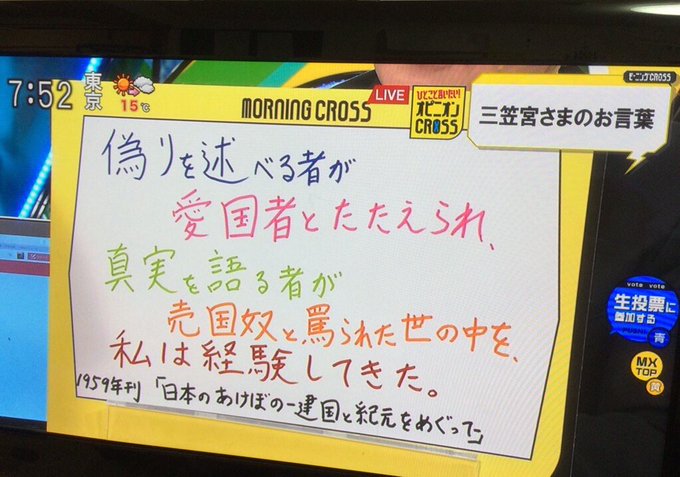 7:52
東京
15℃
MORNING CROSS
LIVE
ひとこと言いたい!
オピニオン
CROSS
モーニングCROSS
三笠宮さまのお言葉
偽りを述べる者が
愛国者とたたえられ、
真実を語る者が
売国奴と罵られた世の中を、
私は経験してきた。
1959年刊 「日本のあけぼの―建国と紀元をめぐって」
vote vote
生投票に
参加する
PUSH!!
青
MX
TOP
黄